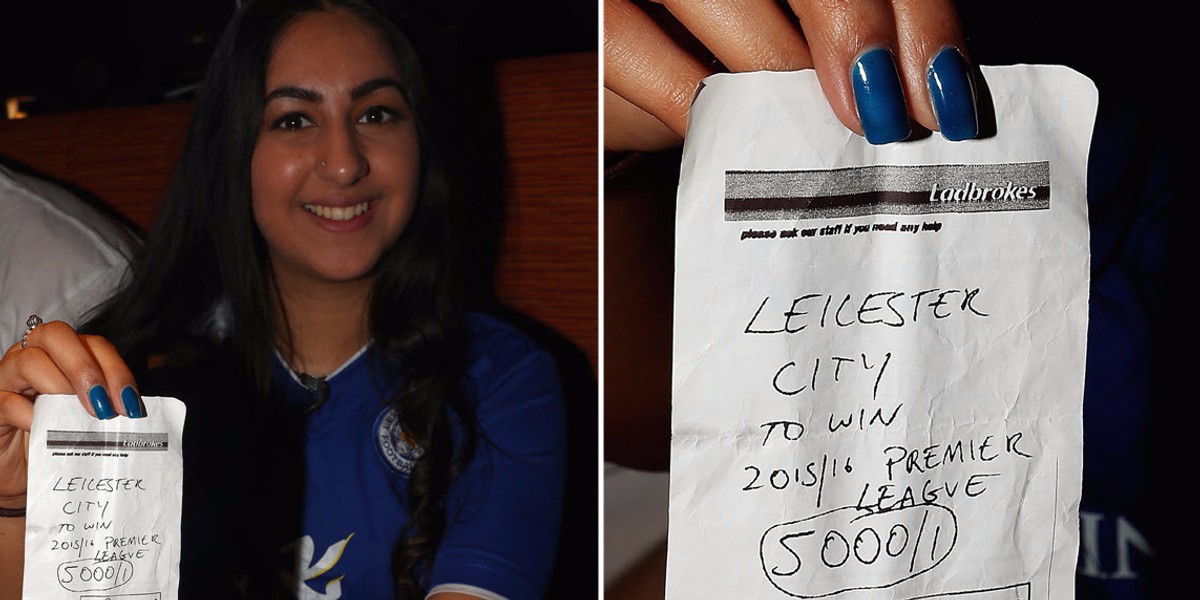 Ladbrokes
please ask our staff if you need any help
LEICESTER
CITY
TO WIN
2015/16 PREMIER
LEAGUE
5000/1
Ladbrokes
please ask our staff if you need any help
LEICESTER
CITY
TO WIN
2015/16 PREMIER
LEAGUE
5000/1